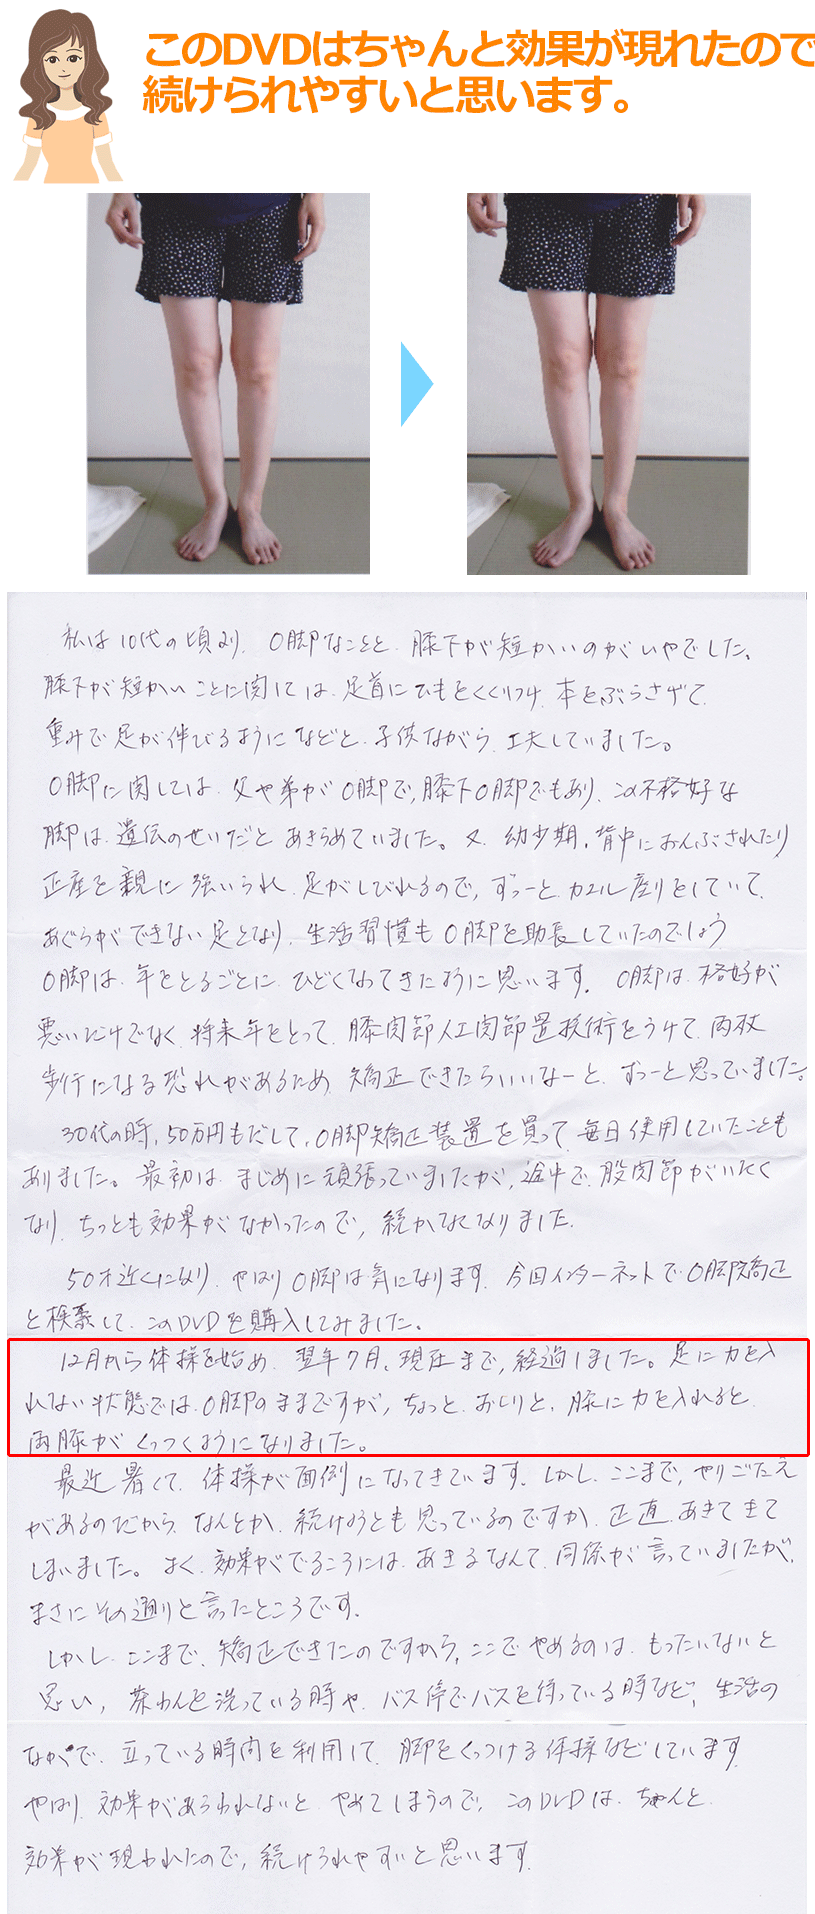 このDVDはちゃんと効果が現れたので
続けられやすいと思います。
私は10代の頃より、O脚なことと、膝下が短かいのがいやでした。
膝下が短かいことに関しては、足首にひもをくくりつけ、本をぶらさげて、
重みで足が伸びるようになどと、子供ながら、工夫していました。
O脚に関しては、父や弟がO脚で、膝下O脚でもあり、この不格好な
脚は、遺伝のせいだと あきらめていました。又、幼少期、背中におんぶされたり
正座を親に強いられ、足がしびれるので、ずっーと、カエル座りをしていて、
あぐらができない足となり、生活習慣もO脚を助長していたのでしょう
O脚は、年をとるごとに、ひどくなってきたように思います。O脚は、格好が
悪いだけでなく、将来年をとって、膝関節人工関節置換術をうけて、両杖
歩行になる恐れがあるため、矯正できたらいいなーと、ずっーと思っていました。
30代の時、50万円もだして、O脚矯正装置を買って、毎日使用していたことも
ありました。最初は、まじめに頑張っていましたが、途中で、股関節がいたく
なり、ちっとも効果がなかったので、続かなくなりました。
50才近くになり、やはりO脚は気になります。今回インターネットで、O脚矯正
と検索して、このDVDを購入してみました。
12月から体操を始め、翌年7月、現在まで、経過しました。足に力を入
れない状態では、O脚のままですが、ちょっと、おしりと、膝に力を入れると、
両膝がくっつくようになりました。
最近暑くて、体操が面倒になってきています。しかし、ここまで、やりごたえ
があるのだから、なんとか、続けようとも思っているのですが、正直、あきてきて
しまいました。よく、効果がでるころには、あきるなんて、関係が言っていましたが、
まさにその通りと言ったところです。
しかし、ここまで、矯正できたのですから、ここでやめるのは、もったいないと
思い、茶わんを洗っている時や、バス停でバスを待っている時など、生活の
なかで、立っている時間を利用して、脚をくっつける体操などしています。
やはり、効果があらわれないと、やめてしまうので、このDVDは、ちゃんと、
効果が現われたので、続けられやすいと思います。